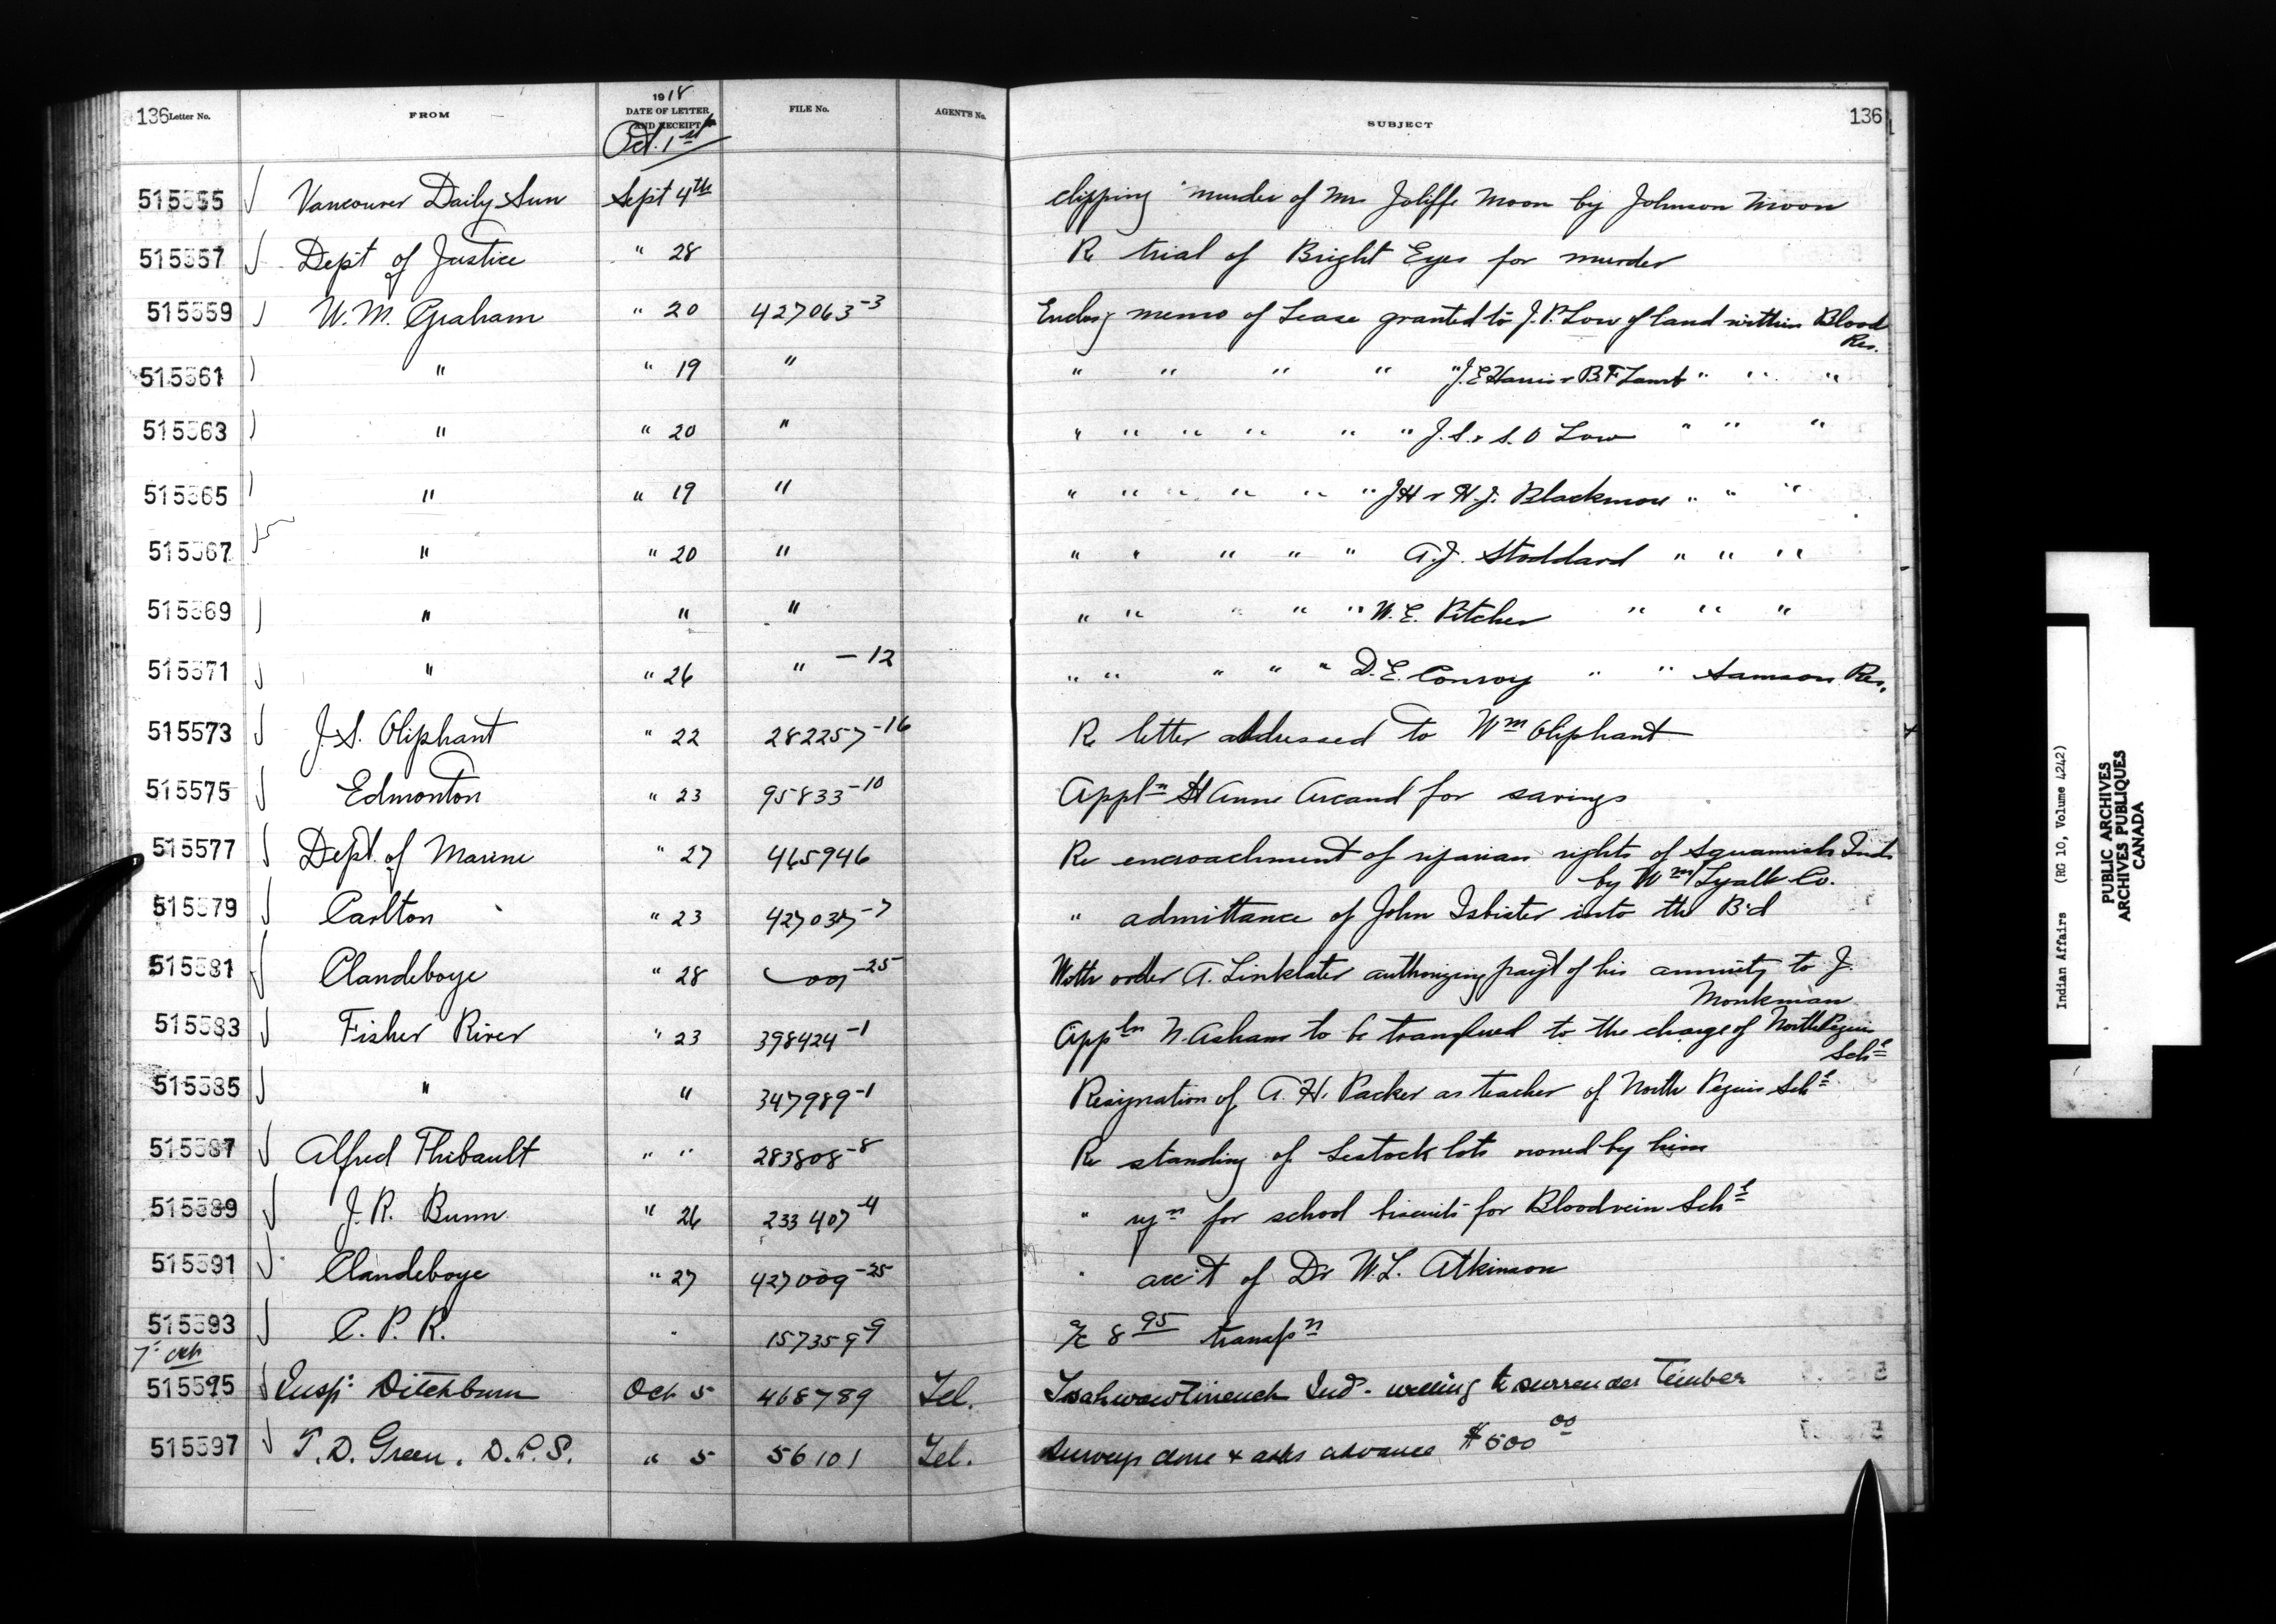 136 Letter No. FROM 1918 DATE OF LETTER AND RECEIPT FILE No. AGENT'S No. SUBJECT 136
Oct. 1st
515555 Vancouver Daily Sun Sept 4th clipping murder of Mrs Joliffe Moon by Johnson Moon
515557 Dept of Justice " 28 Re trial of Bright Eyes for murder
515559 W. M. Graham " 20 427063-3 Enclosg memo of Lease granted to J. P. Low of land within Blood
Res.
515561 " " 19 " " " " " " J. E Harris & B. F Lamb " " "
515563 " " 20 " " " " " " " J. S. & S. O Low " " "
515565 " " 19 " " " " " " " J H & H. J. Blackmore " " "
515567 " " 20 " " " " " " A. J. Stoddard " " "
515569 " " " " " " " " W. E. Pitcher " " "
515571 " " 26 " -12 " " " " " D. E. Conroy " " Samson Res.
515573 J. S. Oliphant " 22 282257-16 Re letter addressed to Wm Oliphant
515575 Edmonton " 23 95833-10 Appln St Anne Arcand for savings
515577 Dept. of Marine " 27 465946 Re encroachment of riparian rights of Squamish Inds
by Wm Lyall Co.
515579 Carlton " 23 427037-7 " admittance of John Isbister into the B'd
515581 Clandeboye " 28 09-25 With order A. Linklater authorizing payt of his annuity to J.
Monkman
515583 Fisher River " 23 398424-1 Appln N. Asham to be transferred to the charge of North Peguis
Schl
515585 " " 347989-1 Resignation of A. H. Packer as teacher of North Peguis Schl
515587 Alfred Thibault " " 283808-8 Re standing of Lestock lots owned by him
515589 J. R. Bunn " 26 233407-4 " reqn for school biscuits for Bloodvein Schl
515591 Clandeboye " 27 427009-25 " acc't of Dr W. L. Atkinson
515593 C. P. R. " 157359-9 a/c 8 95 transpn
7th Oct
515595 Insp: Ditchburn Oct 5 468789 Tel. Tsahwawtineuch Inds - willing to surrender Timber
515597 T. D. Green. D.L.S. " 5 56101 Tel. Surveys done & asks advance $500 00
Indian Affairs (RG 10, Volume 4242)
PUBLIC ARCHIVES
ARCHIVES PUBLIQUES
CANADA